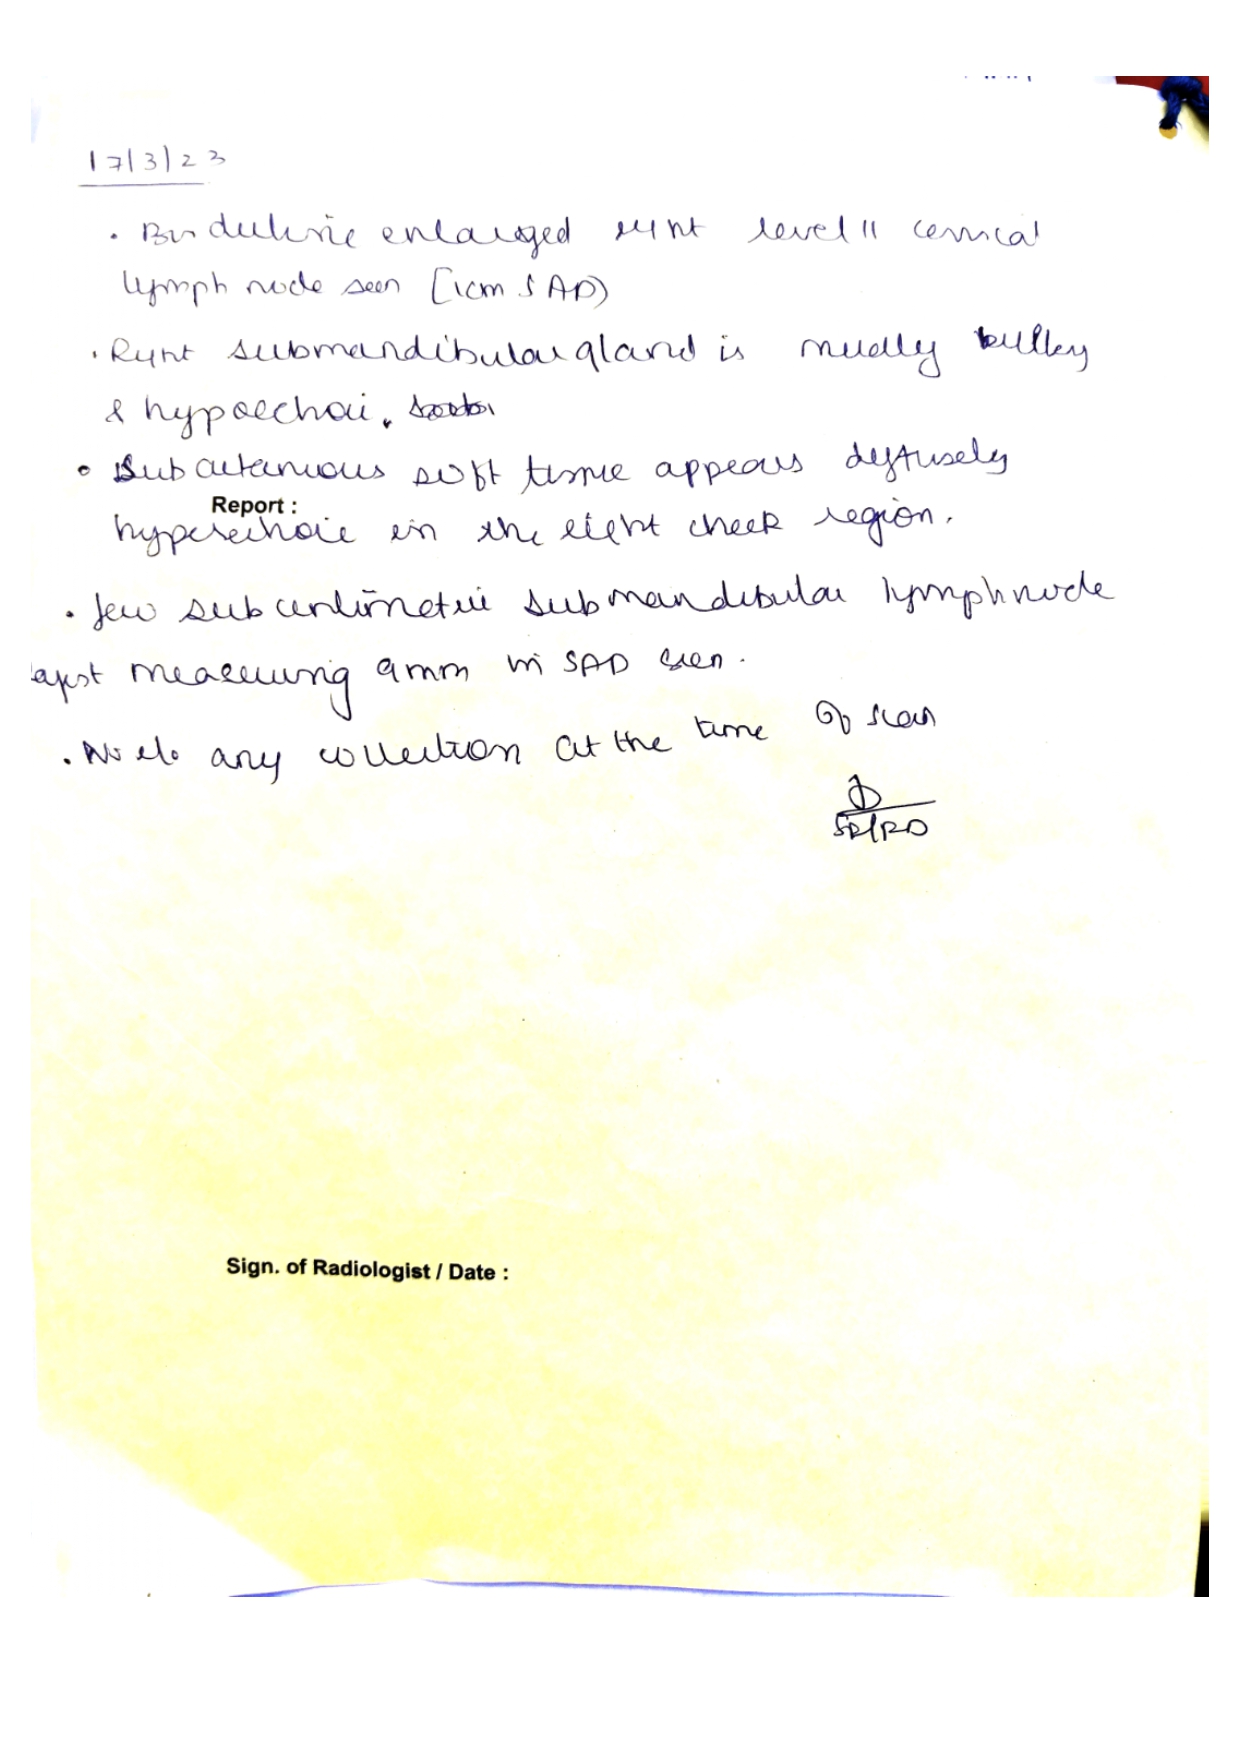 17/3/23
. Borderline enlarged right level II cervical
lymph node seen [1cm SAD)
. Right submandibular gland is mildly bulky
& hypoechoic.
• Subcutaneous soft tissue appears diffusely
Report :
hyperechoic in the right cheek region.
. few subcentimetric submandibular lymphnode
largest measuring 9mm in SAD seen.
. No e/o any collection at the time of scan
SR/RD
Sign. of Radiologist / Date :